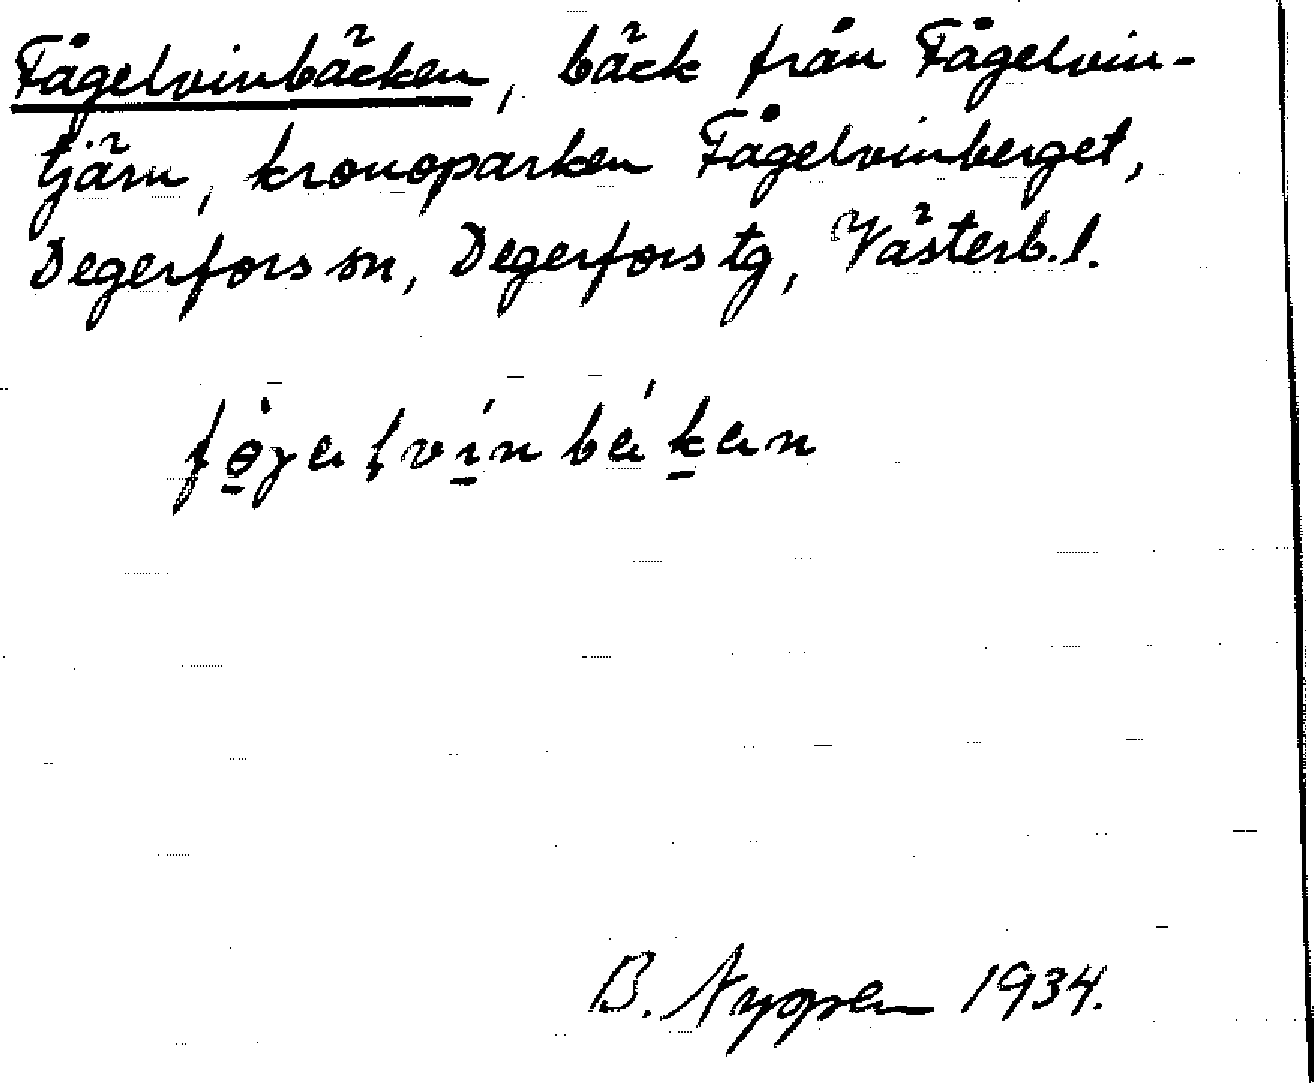 Fågelvinbäcken, bäck från Fågelvin-
tjärn, kronoparken Fågelvinberget,
Degerfors sn, Degerfors tg, Västerb. l.
B. Nyppen 1934.